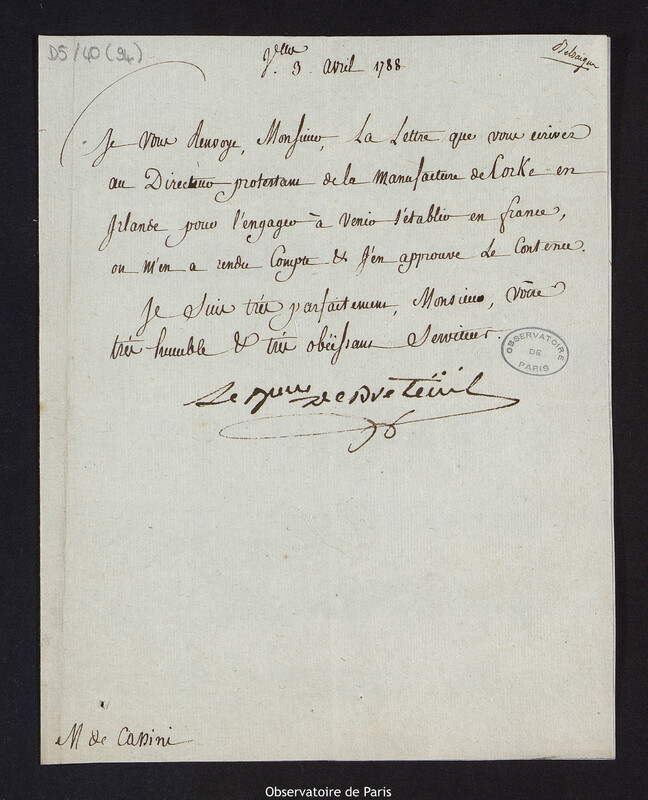 D5/40 (94)
V.lles 3 avril 1788
Je vous Renvoye, Monsieur, La Lettre que vous ecrivez
au Directeur protestant de la Manufacture de Corke en
Irlande pour l'engager à venir s'établir en france,
on m'en a rendu Compte & J'en approuve Le Contenu.
Je suis très parfaitement, Monsieur, votre
très humble & très obéissant Serviteur.
Le Bon de Breteüil
OBSERVATOIRE
DE
PARIS
M de Cassini
Observatoire de Paris